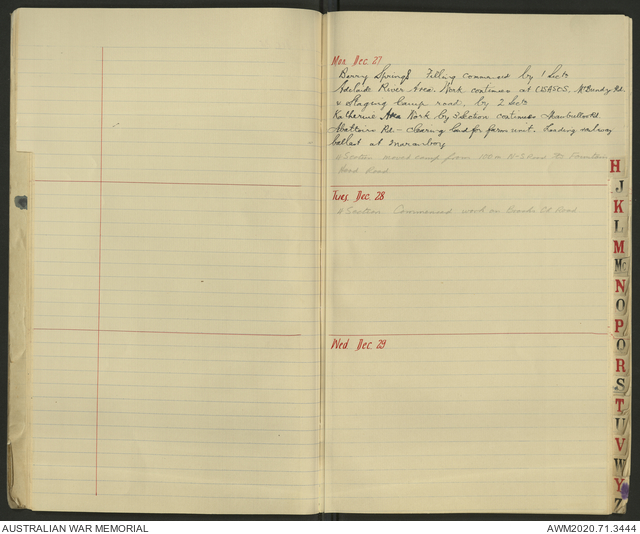 Mon. Dec. 27
Berry Springs Filling commenced by 1 Sect.
Adelaide River Area. Work continues at USASOS. McBundy Rd.
Staging Camp road, by 2 Sect.
Katherine Area Work by 3 Section continues Rd.
Abattoirs Rd. - clearing land for farm unit. Loading railway
ballast at Maranboy
Section moved camp from
Road.
Tues. Dec. 28
Section Commenced work on Road.
Wed. Dec. 29
H
J
K
L
M
Mc
N
O
P
Q
R
S
T
U
V
W
Y
Z
AUSTRALIAN WAR MEMORIAL
AWM2020.71.3444